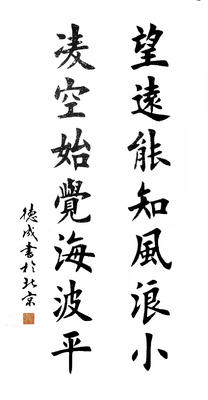 望遠能知風浪小
淩空始覺海波平
德成書於北京